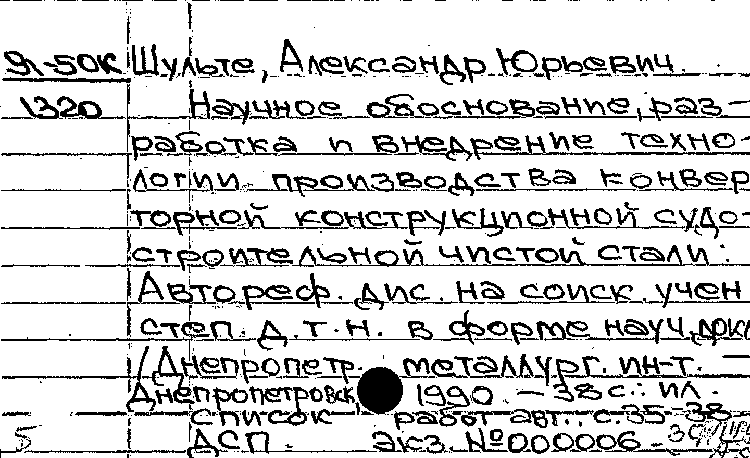 Я-50К Шульте, Александр Юрьевич.
1320 Научное обоснование, раз-
работка и внедрение техно-
логии производства конвер
торной конструкционной судо-
строительной чистой стали:
Автореф. дис. на соиск. учен
степ. д.т.н. в форме науч. докл
/Днепропетр. металлург. ин-т. -
Днепропетровск, 1990. - 38 с.: ил.
Список работ авт., с. 35-38
5 ДСП. Экз. №000006.